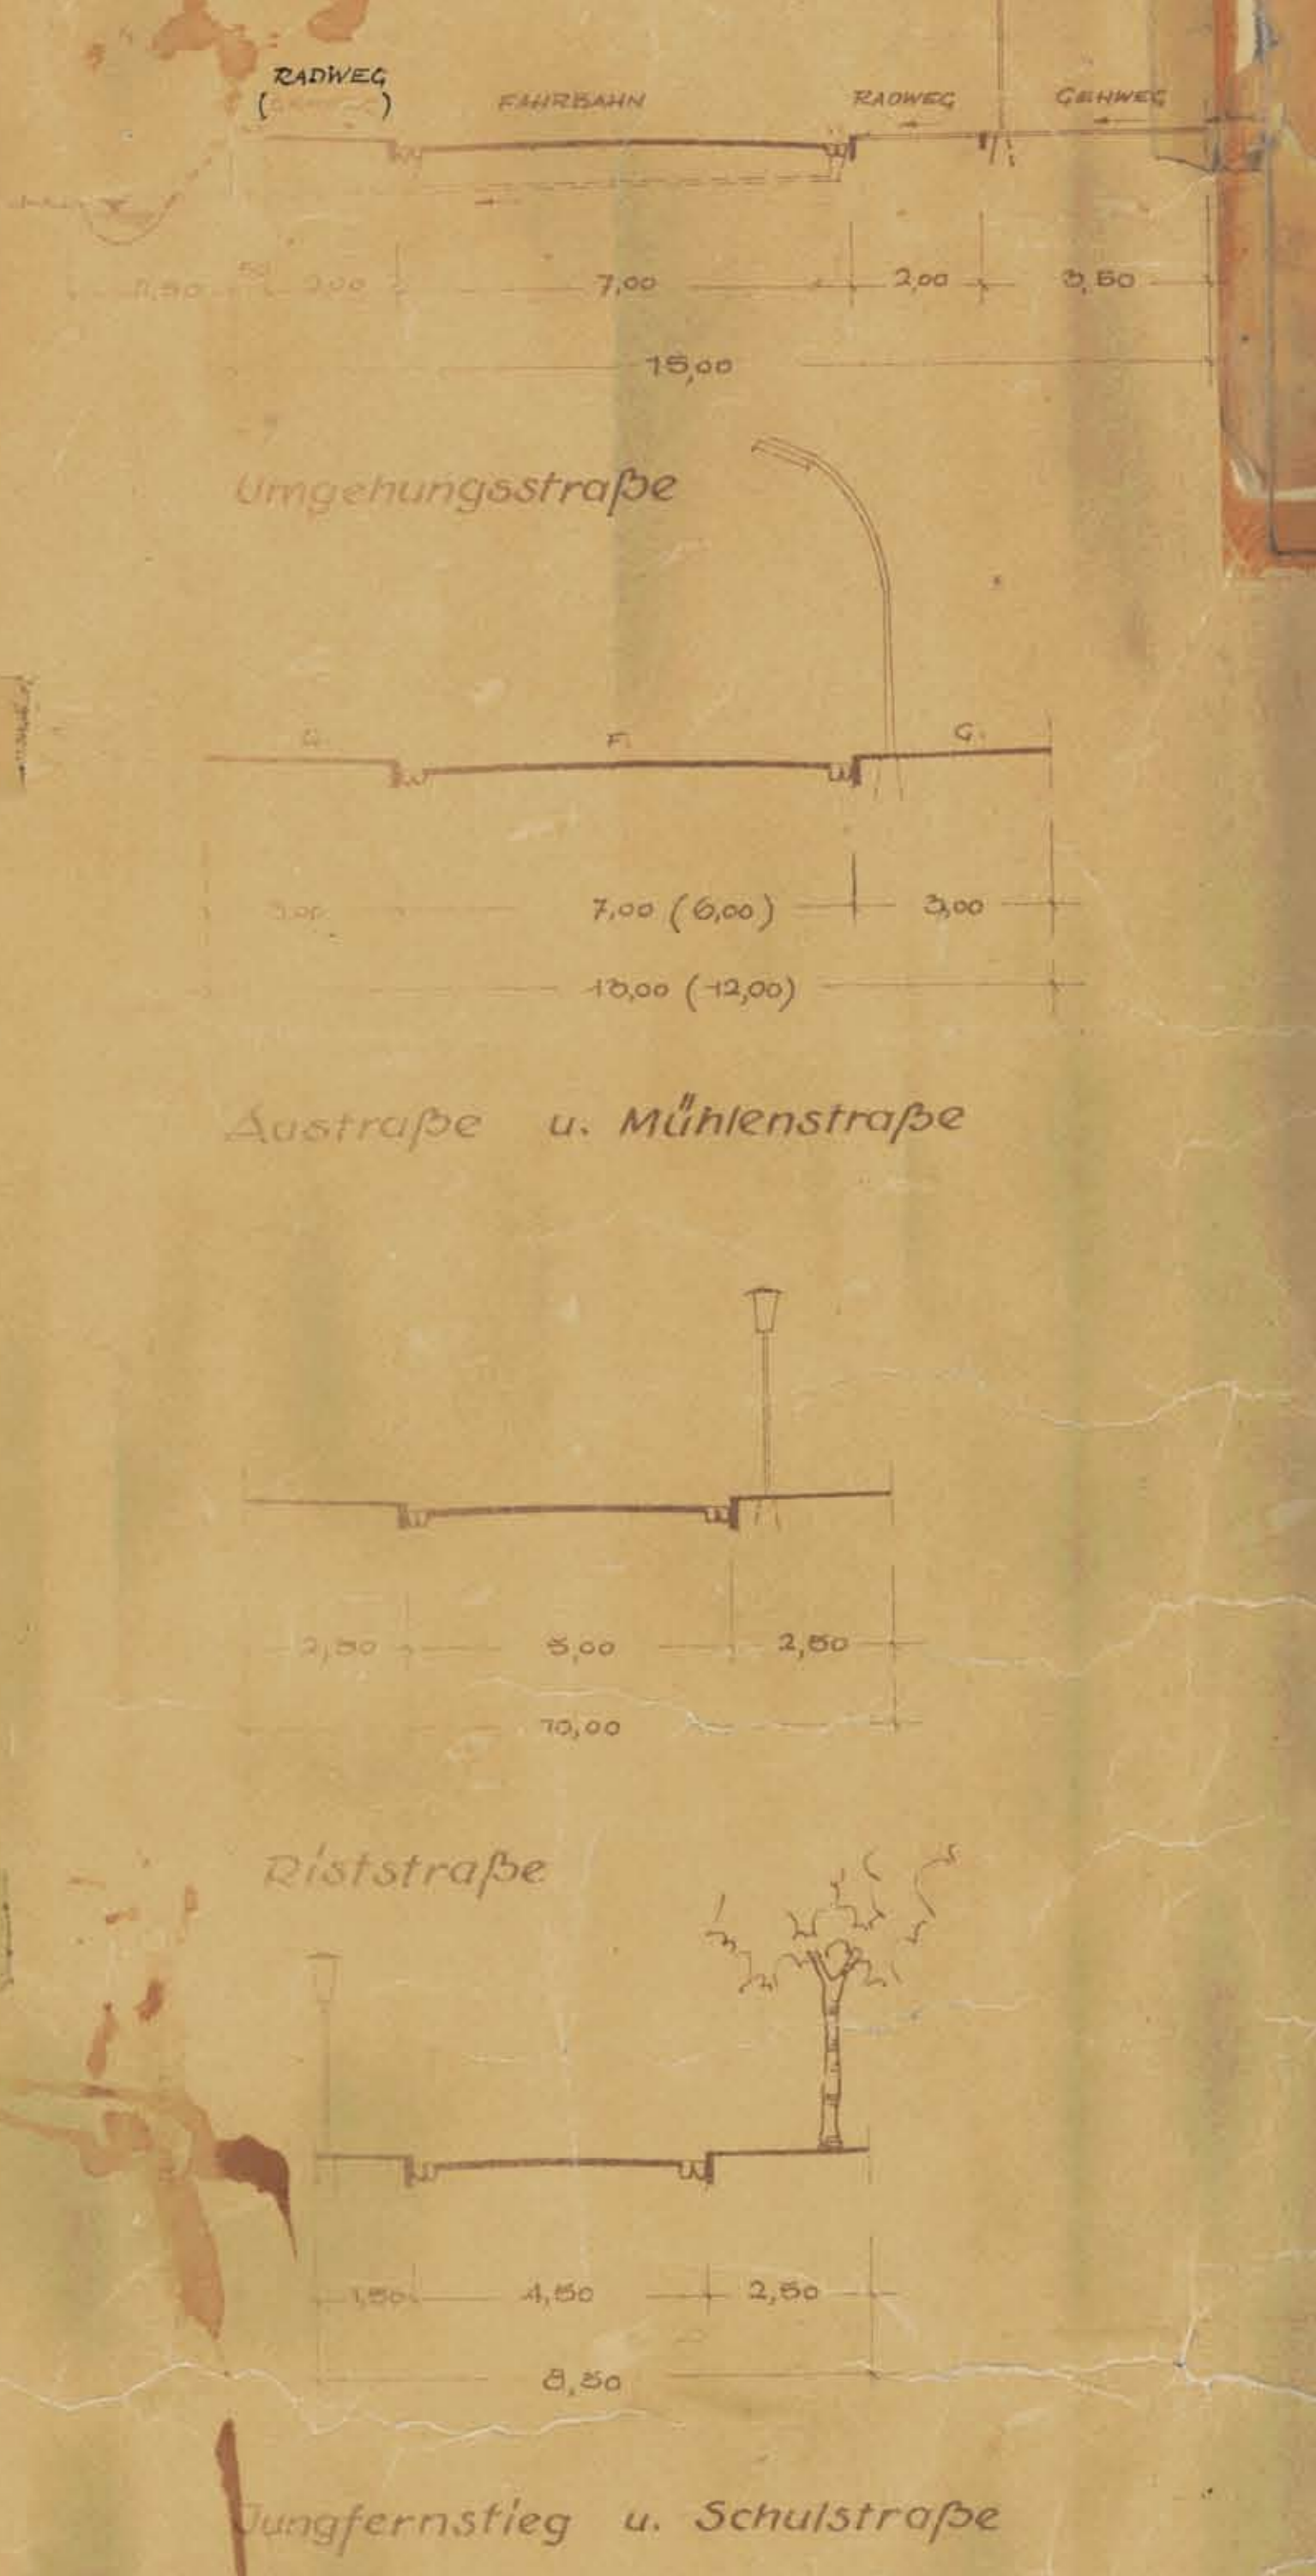 RADWEG
( ) FAHRBAHN RADWEG GEHWEG
50
2,00 7,00 2,00 3,50
15,00
Umgehungsstraße
G. F. G.
3,00 7,00 (6,00) 3,00
13,00 (12,00)
Austraße u. Mühlenstraße
2,50 5,00 2,50
10,00
Riststraße
1,50 4,50 2,50
8,50
Jungfernstieg u. Schulstraße